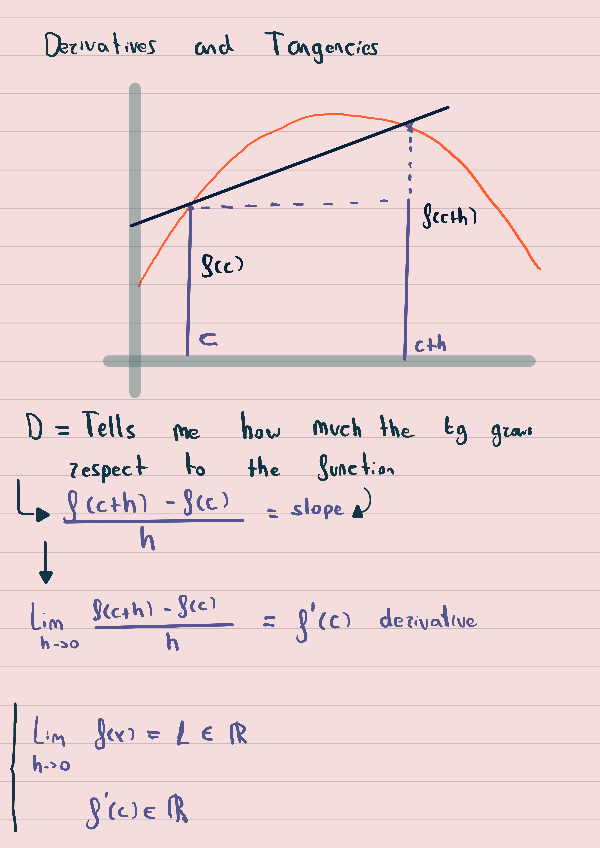 Derivatives and Tangencies
f(c+h)
f(c)
c
c+h
D = Tells me how much the tg grows
respect to the function
f(c+h) - f(c) / h = slope
Lim h→0 f(c+h) - f(c) / h = f'(c) derivative
Lim h→0 f(x) = L ∈ ℝ
f'(c) ∈ ℝ